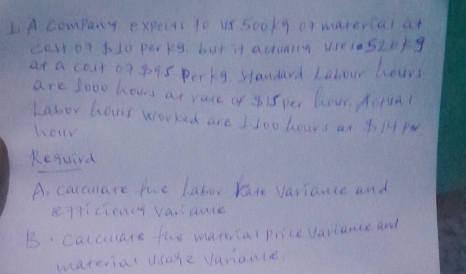 1. A company expects to us 500kg of material at
cost of $10 per kg. but it actually uses 520kg
at a cost of $9.5 per kg. Standard Labour hours
are 1000 hours at rate of $15 per hour. Actual
Labor hours worked are 1100 hours at $14 per
hour
Requird
A. calculate the Labor Rate variance and
efficiency variance
B. calculate the material price variance and
material usage variance.